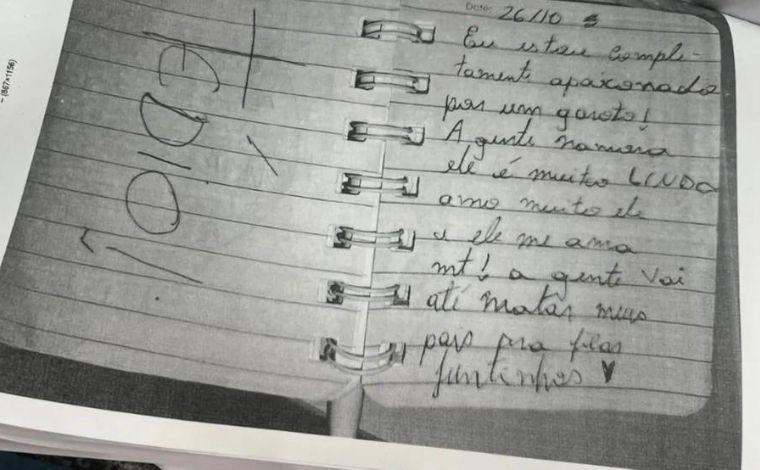 – (867×1156)
TÉDIO
Date: 26/10
Eu estou comple-
tamente apaxonado
por um garoto!
A gente namora
ele é muito LINDO
amo muito ele
e ele me ama
mt! a gente vai
até matar meus
pais pra ficar
juntinhos ♥